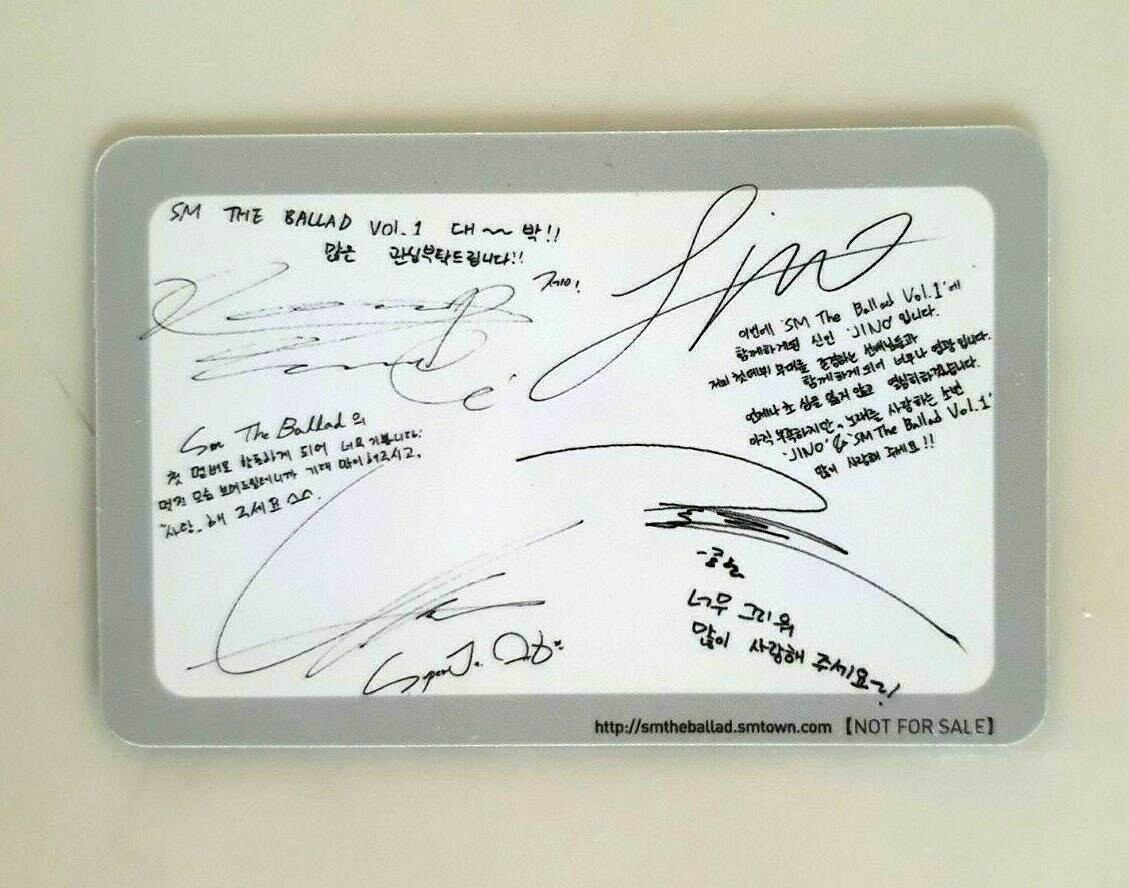 SM THE BALLAD Vol.1 대~~박!!
많은 관심부탁드립니다!!
제이!
Jino
이번에 'SM The Ballad Vol.1'에
함께하게된 신인 'JINO'입니다.
저의 첫데뷔 무대를 존경하는 선배님들과
함께하게 되어 너무나 영광입니다.
언제나 초심을 잃지 않고 열심히하겠습니다.
아직 부족하지만 노래를 사랑하는 소년
'JINO' & 'SM The Ballad Vol.1'
많이 사랑해 주세요!!
The Ballad 의
첫 멤버로 활동하게 되어 너무 기쁩니다.
멋진 모습 보여드릴테니까 기대 많이해주시고,
"사랑"해 주세요 ^^.
너무 그리워
많이 사랑해 주세요~!
http://smtheballad.smtown.com 【NOT FOR SALE】